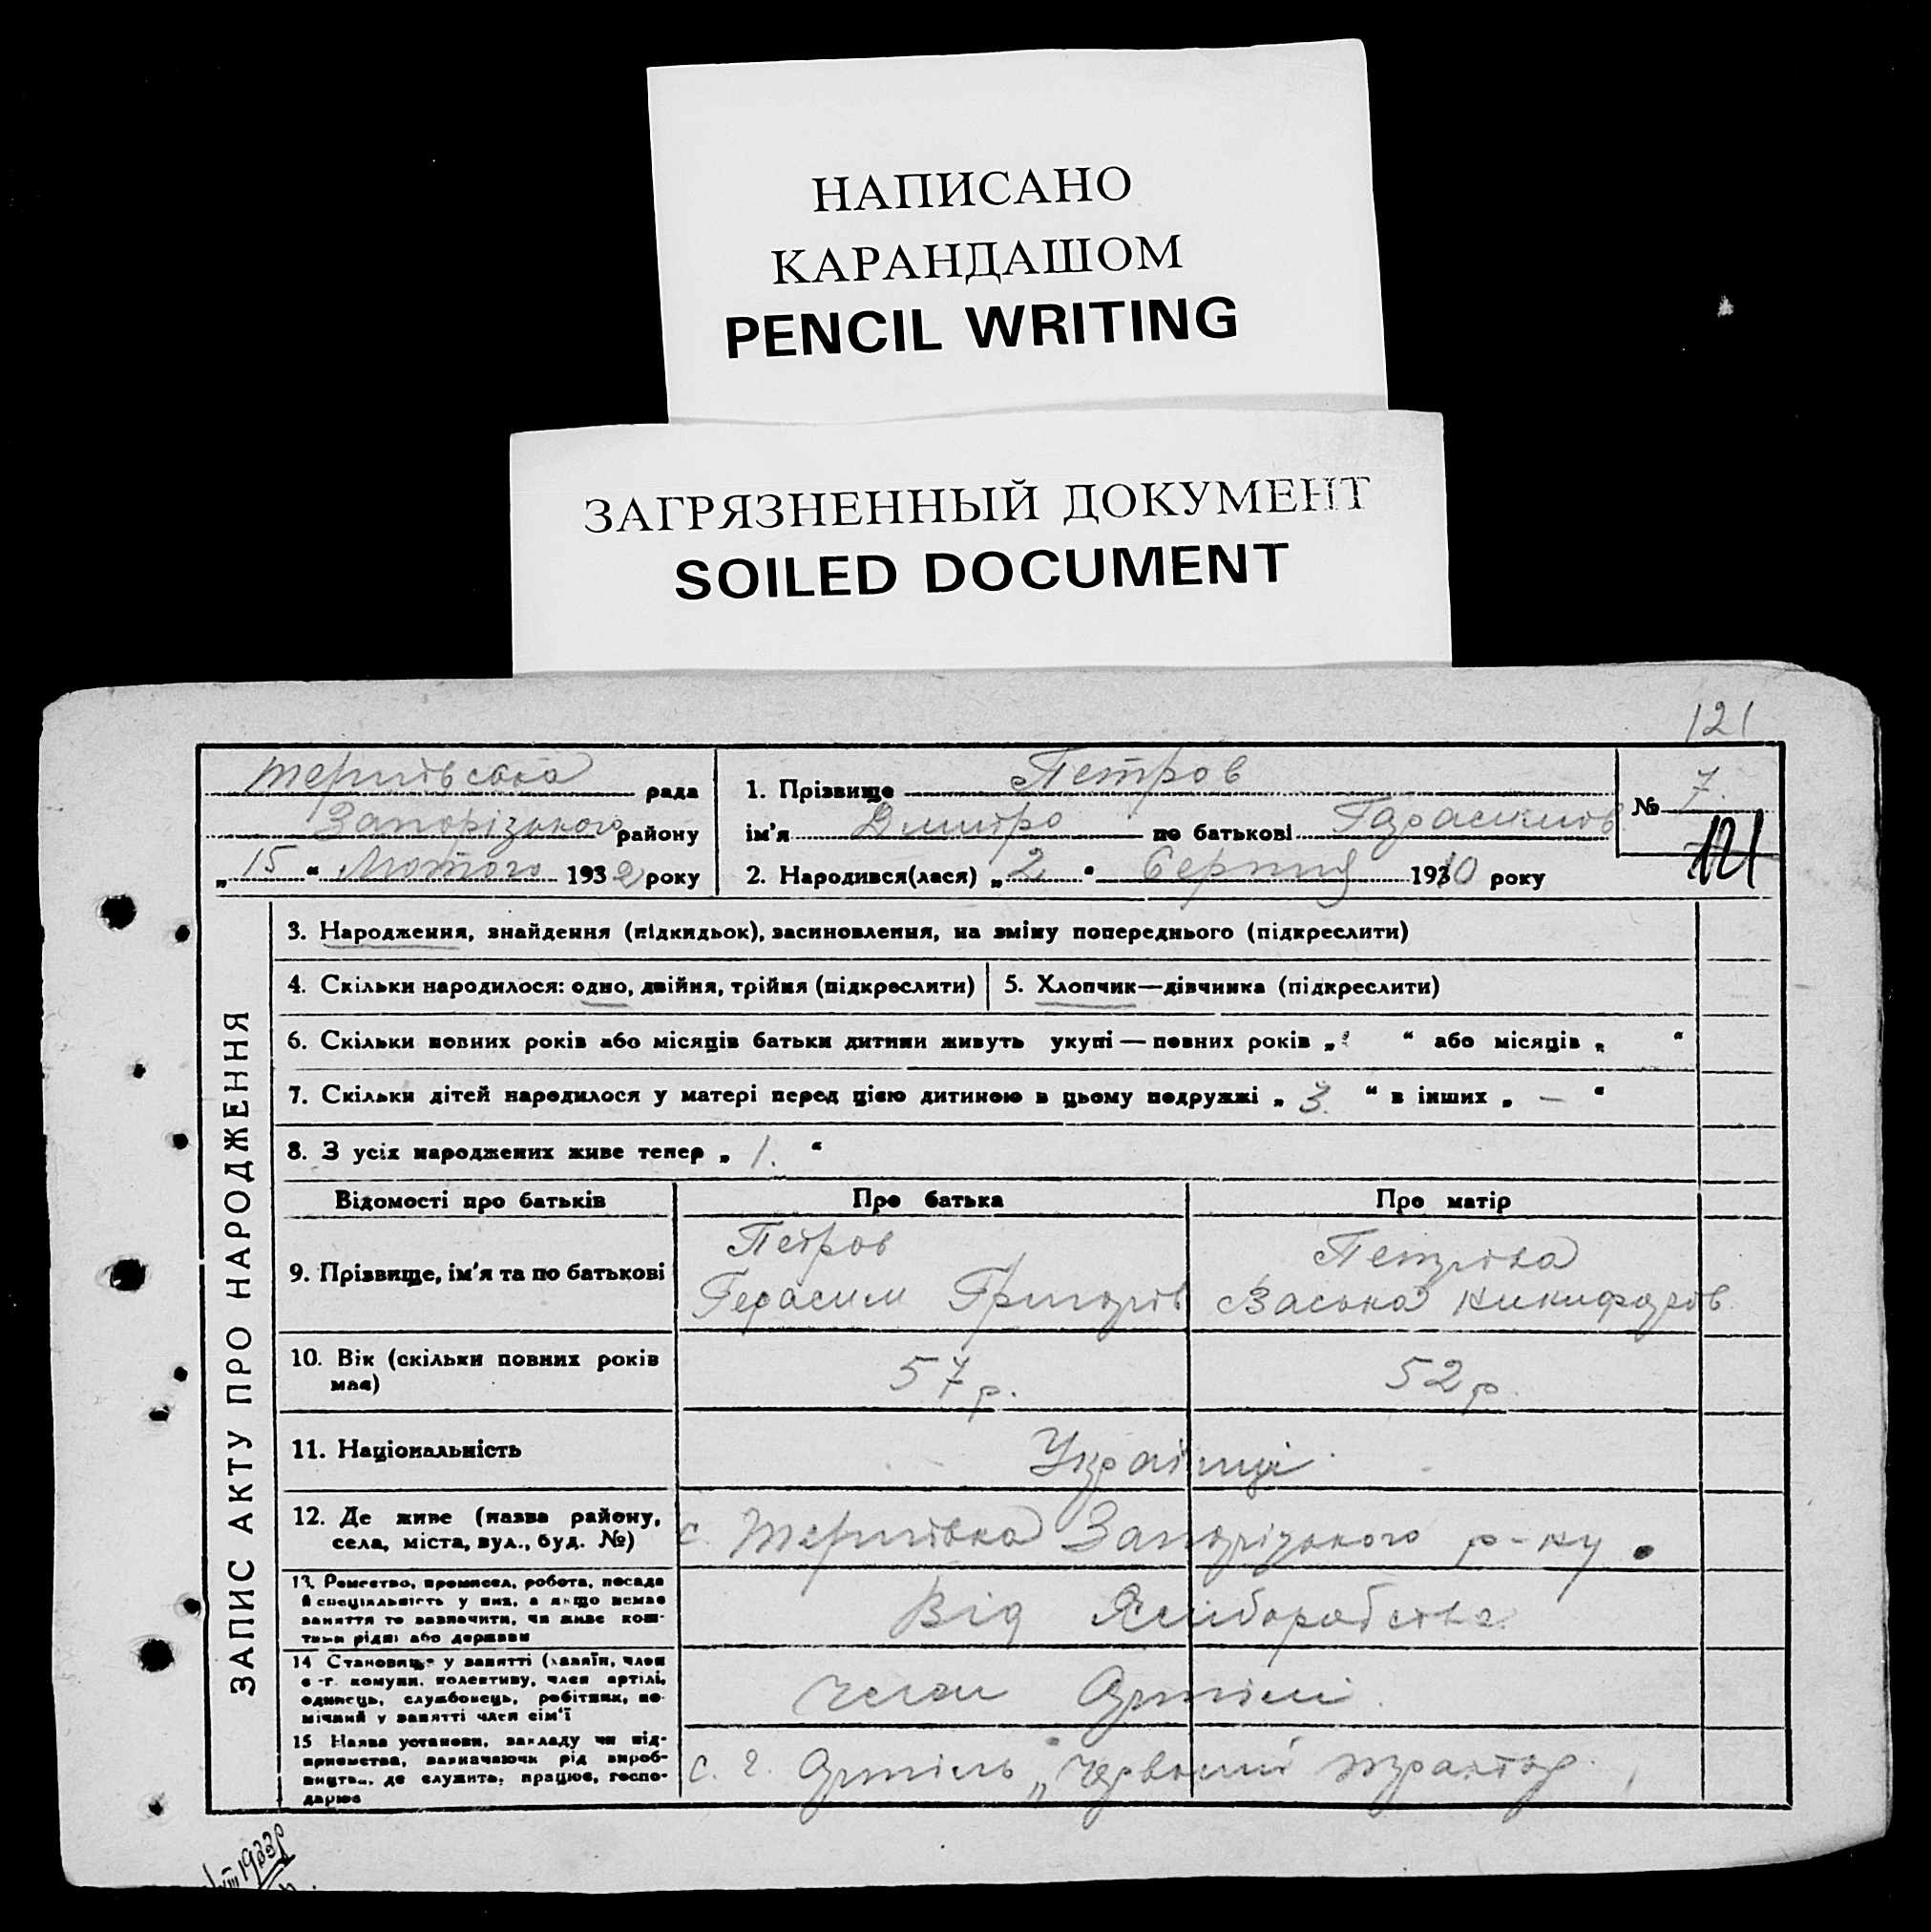 НАПИСАНО
КАРАНДАШОМ
PENCIL WRITING
ЗАГРЯЗНЕННЫЙ ДОКУМЕНТ
SOILED DOCUMENT
121
Тернівська рада
Запорізького району
„15“ Лютого 1932 року
1. Прізвище Петров
ім'я Дмитро по батькові Гарасимов
2. Народився(лася) „2“ Серпня 1910 року
№ 7.
121
ЗАПИС АКТУ ПРО НАРОДЖЕННЯ
3. Народження, знайдення (підкидьок), засиновлення, на зміну попереднього (підкреслити)
4. Скільки народилося: одно, двійня, трійня (підкреслити)
5. Хлопчик—дівчинка (підкреслити)
6. Скільки повних років або місяців батьки дитини живуть укупі — повних років „ “ або місяців „ “
7. Скільки дітей народилося у матері перед цією дитиною в цьому подружжі „ 3. “ в інших „ — “
8. З усіх народжених живе тепер „ 1. “
Відомості про батьків
Про батька
Про матір
9. Прізвище, ім'я та по батькові
Петров
Герасим Григорів
Петрова
Васька Никифорів
10. Вік (скільки повних років
має)
57 р.
52 р.
11. Національність
Українці
12. Де живе (назва району,
села, міста, вул., буд. №)
с. Тернівка Запорізького р-ну
13. Ремество, промисел, робота, посада
й спеціяльність у них, а якщо немає
заняття то зазначити, чи живе кош-
тами рідні або держави
Від Хліборобства
14 Становище у занятті (хазяїн, член
с.-г. комуни, колективу, член артілі,
одинець, службовець, робітник, по-
мічний у занятті член сім'ї
член Артілі
15 Назва установи, закладу чи під-
приємства, зазначаючи рід вироб-
ництва, де служить, працює, госпо-
дарює
с. г. Артіль „Червоний трактор